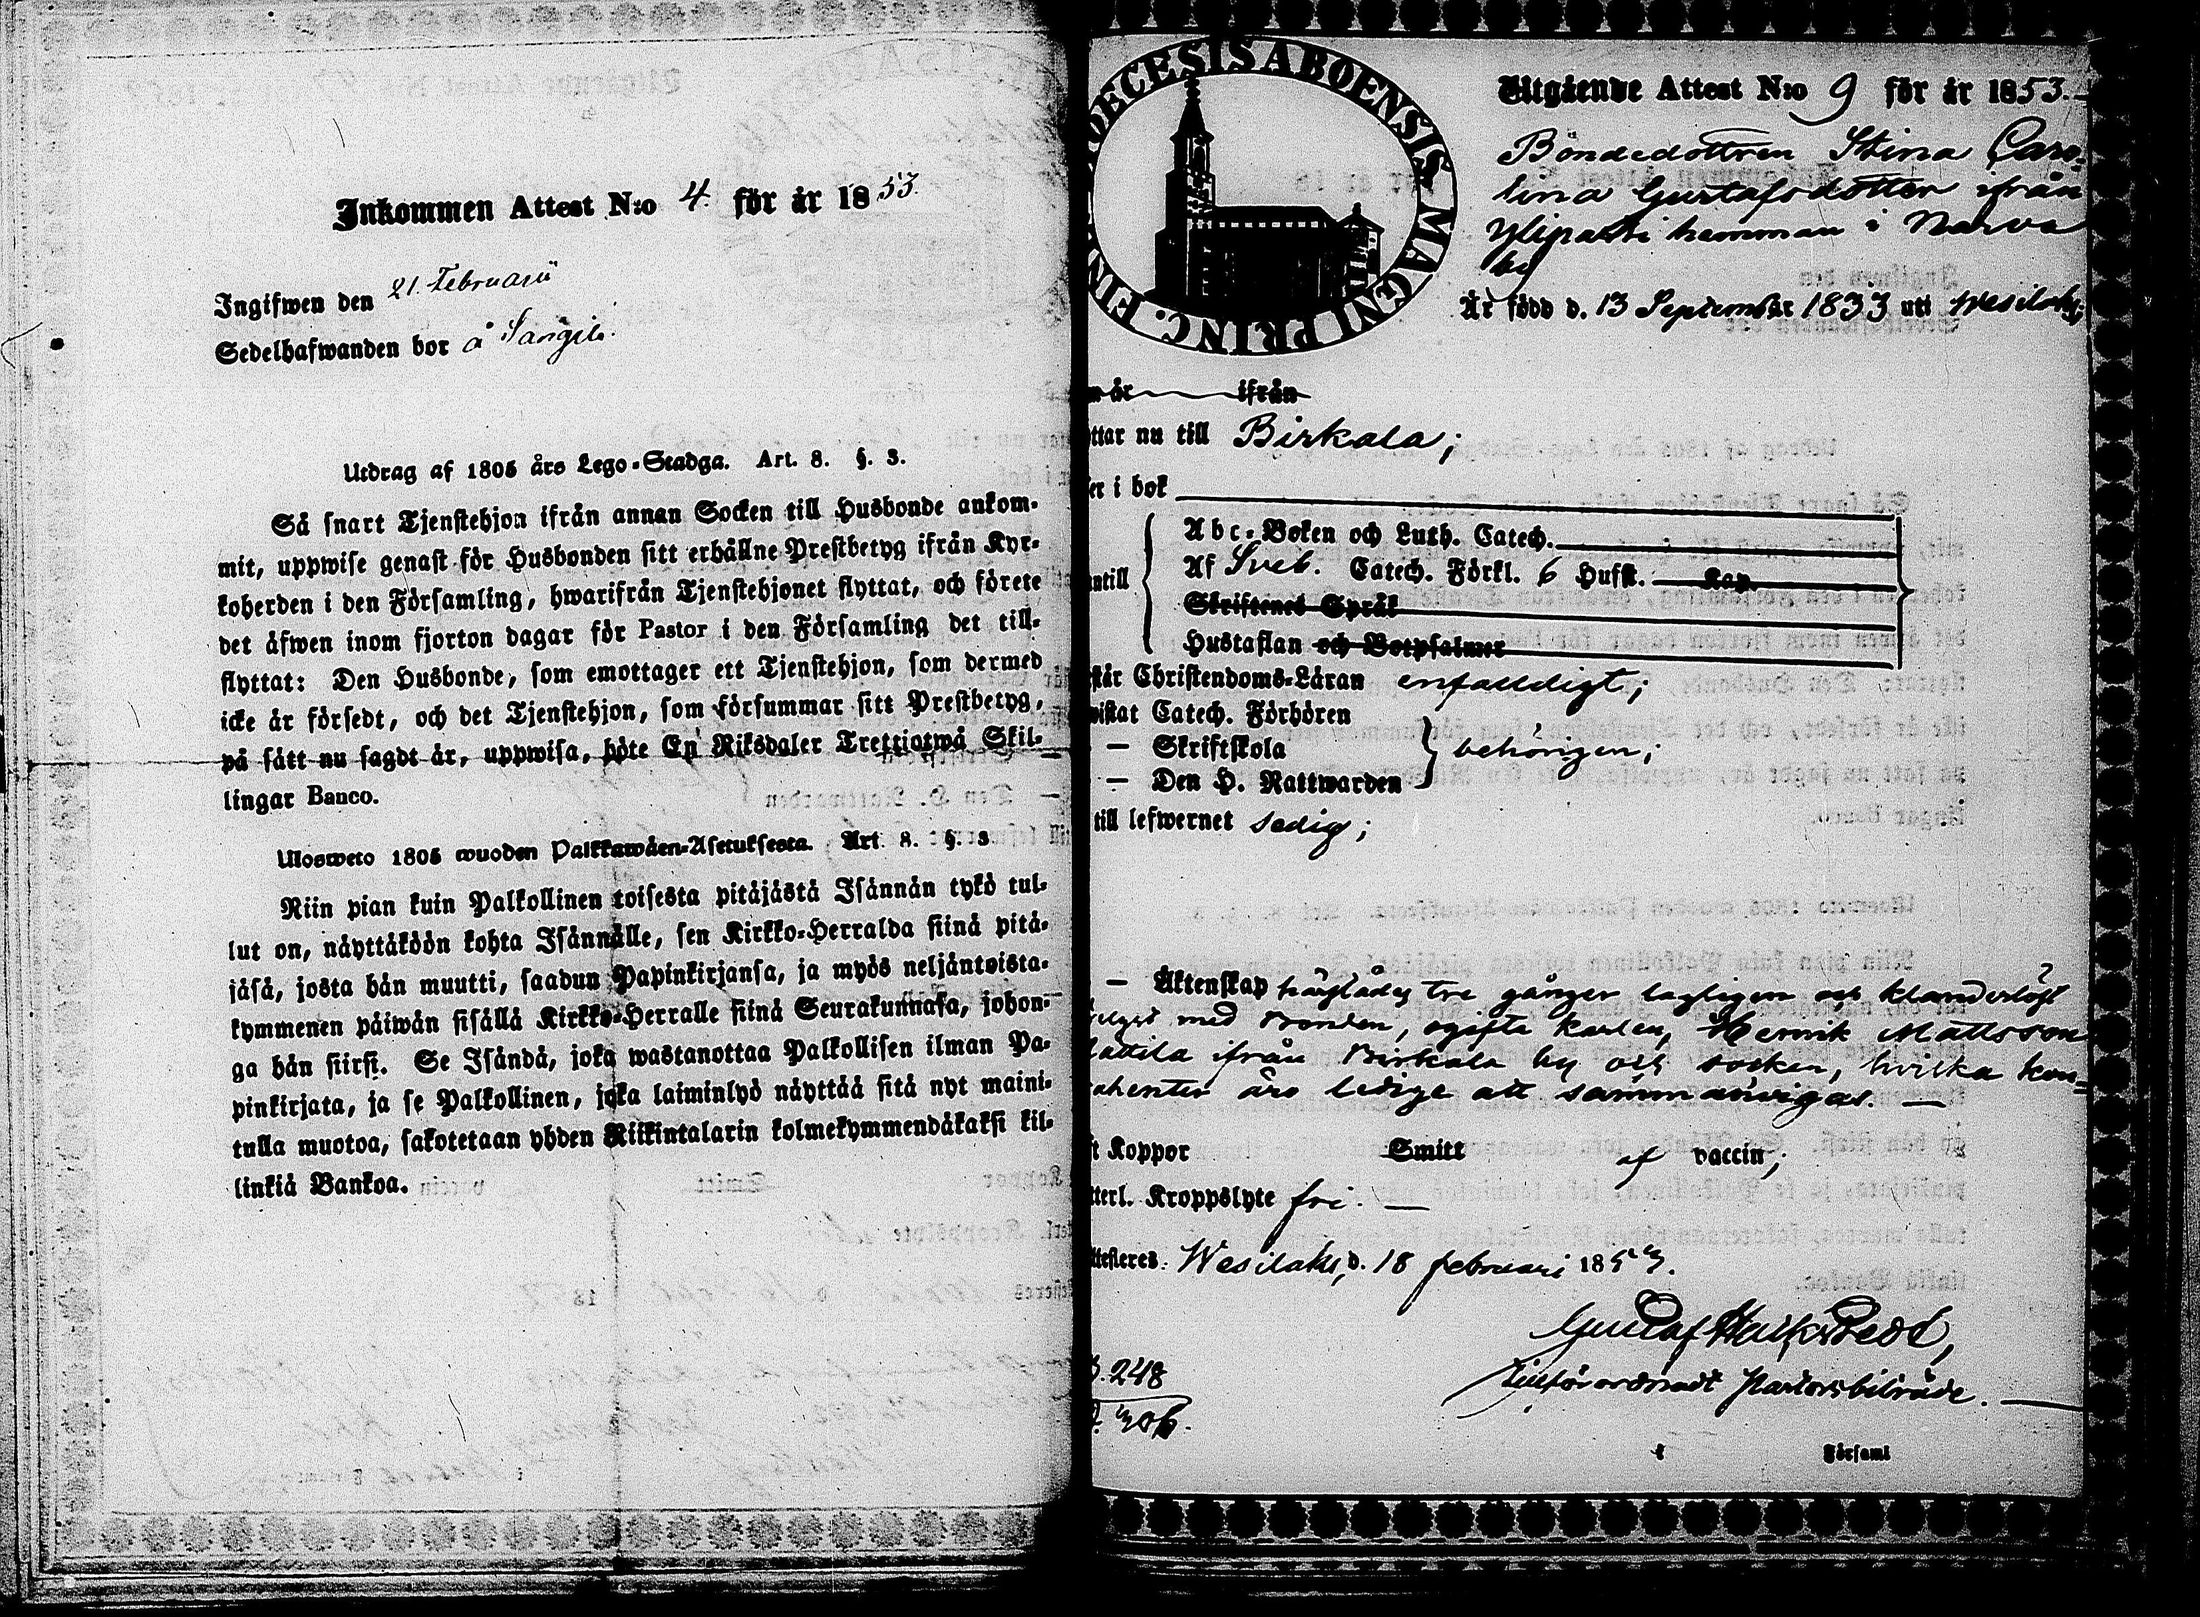 Inkommen Attest N:o 4. för år 1853.
Ingifwen den 21. Februarii
Sedelhafwanden bor å
Utdrag af 1805 års Lego-Stadga. Art. 8. §. 3.
Så snart Tjenstehjon ifrån annan Socken till Husbonde ankom-
mit, uppwise genast för Husbonden sitt erhållne Prestbetyg ifrån Kyr-
koherden i den Församling, hwarifrån Tjenstehjonet flyttat, och förete
det äfwen inom fjorton dagar för Pastor i den Församling det till-
flyttat: Den Husbonde, som emottager ett Tjenstehjon, som dermed
icke är försedt, och det Tjenstehjon, som försummar sitt Prestbetyg,
på sätt nu sagdt är, uppwisa, böte En Riksdaler Trettiotwå Skil-
lingar Banco.
Ulosweto 1805 wuoden Palkkawäen-Asetuksesta. Art. 8. §. 3
Niin pian kuin Palkollinen toisesta pitäjästä Isännän tykö tul-
lut on, näyttäköön kohta Isännälle, sen Kirkko-Herralda siinä pitä-
jäsä, josta hän muutti, saadun Papinkirjansa, ja myös neljäntoista-
kymmenen päiwän sisällä Kirkko-Herralle siinä Seurakunnasa, johon-
ga hän siirsi. Se Isändä, joka wastanottaa Palkollisen ilman Pa-
pinkirjata, ja se Palkollinen, joka laiminlyö näyttää sitä nyt maini-
tulla muotoa, sakotetaan yhden Riikintalarin kolmekymmendäkaksi kil-
linkiä Bankoa.
DECESIS ABOENSIS MAGNI PRINC. FIN
Utgående Attest N:o 9 för år 1853.
Bondedottren Stina Caro-
lina Gustafsdotter ifrån
Ylipatri hemman i Narva
by
Är född d. 13 September 1833 uti Wesilaks;
n år ifrån
ttar nu till Birkala;
er i bok
Abc-Boken och Luth. Catech.
ntill Af Sveb. Catech. Förkl. 6 Hufst. Kap.
Skriftenes Språk
Hustaflan och Botpsalmer
står Christendoms-Läran enfalldigt;
wistat Catech. Förhören
— Skriftskola behörigen;
— Den H. Nattwarden
till lefwernet sedig;
— Äktenskap tre gånger lagligen och klanderlöst
med Bonden, ogifte karlen, Henrik Mattsson
attila ifrån Birkala by och socken, hvilka kon-
trahenter äro ledige att sammanvigas. —
t Koppor Smitt af vaccin;
tterl. Kroppslyte fri. —
ttesteres. Wesilaks, d. 18 februari 1853.
Gustaf
Tillförordnadt Pastorsbiträde. —
248
306.
Församl